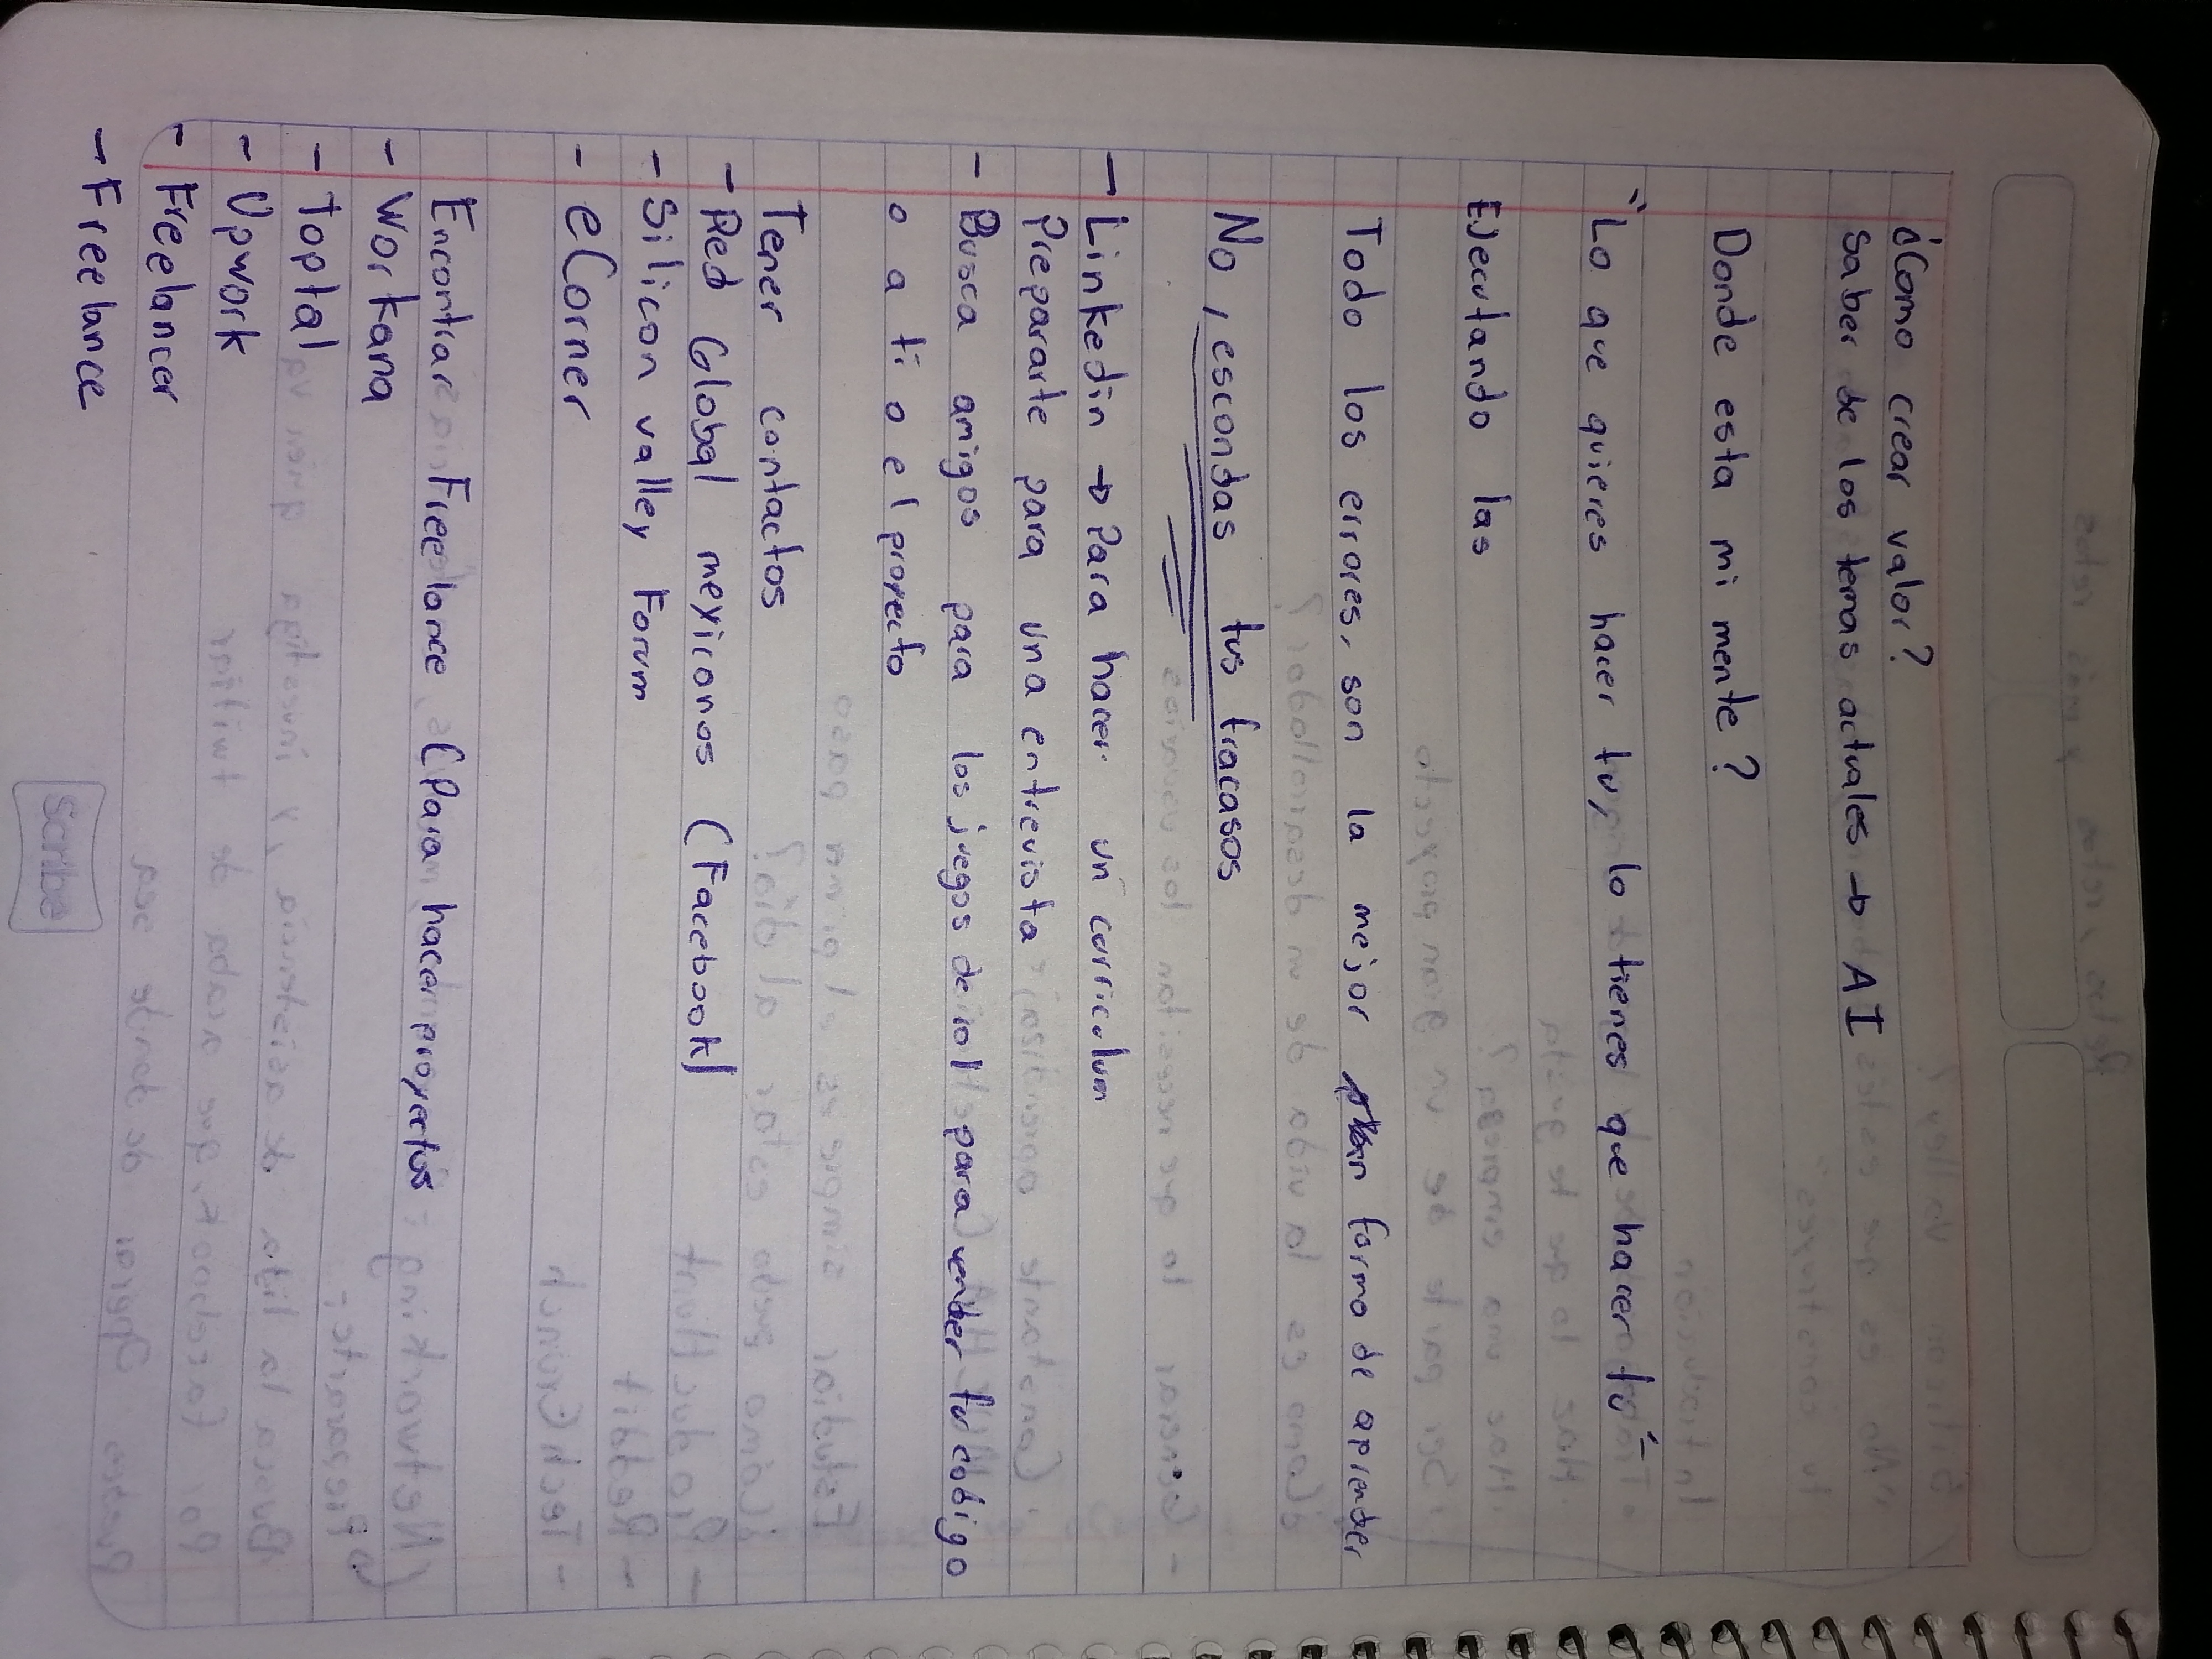 ¿Como crear valor?
Saber de los temas actuales → AI
Donde esta mi mente?
"Lo que quieres hacer tu, lo tienes que hacer tu"
EJecutando las
Todo los errores, son la mejor forma de aprender
No, escondas tus fracasos
- Linkedin → Para hacer un curriculum
Prepararte para una entrevista
- Busca amigos para los juegos de rol para vender tu codigo
o a ti o el proyecto
Tener contactos
- Red Global mexicanos (Facebook)
- Silicon valley Forum
- eCorner
Encontrar Freelance (Para hacer proyectos
- Workana
- Toptal
- Upwork
- Freelancer
- Freelance
Scribe